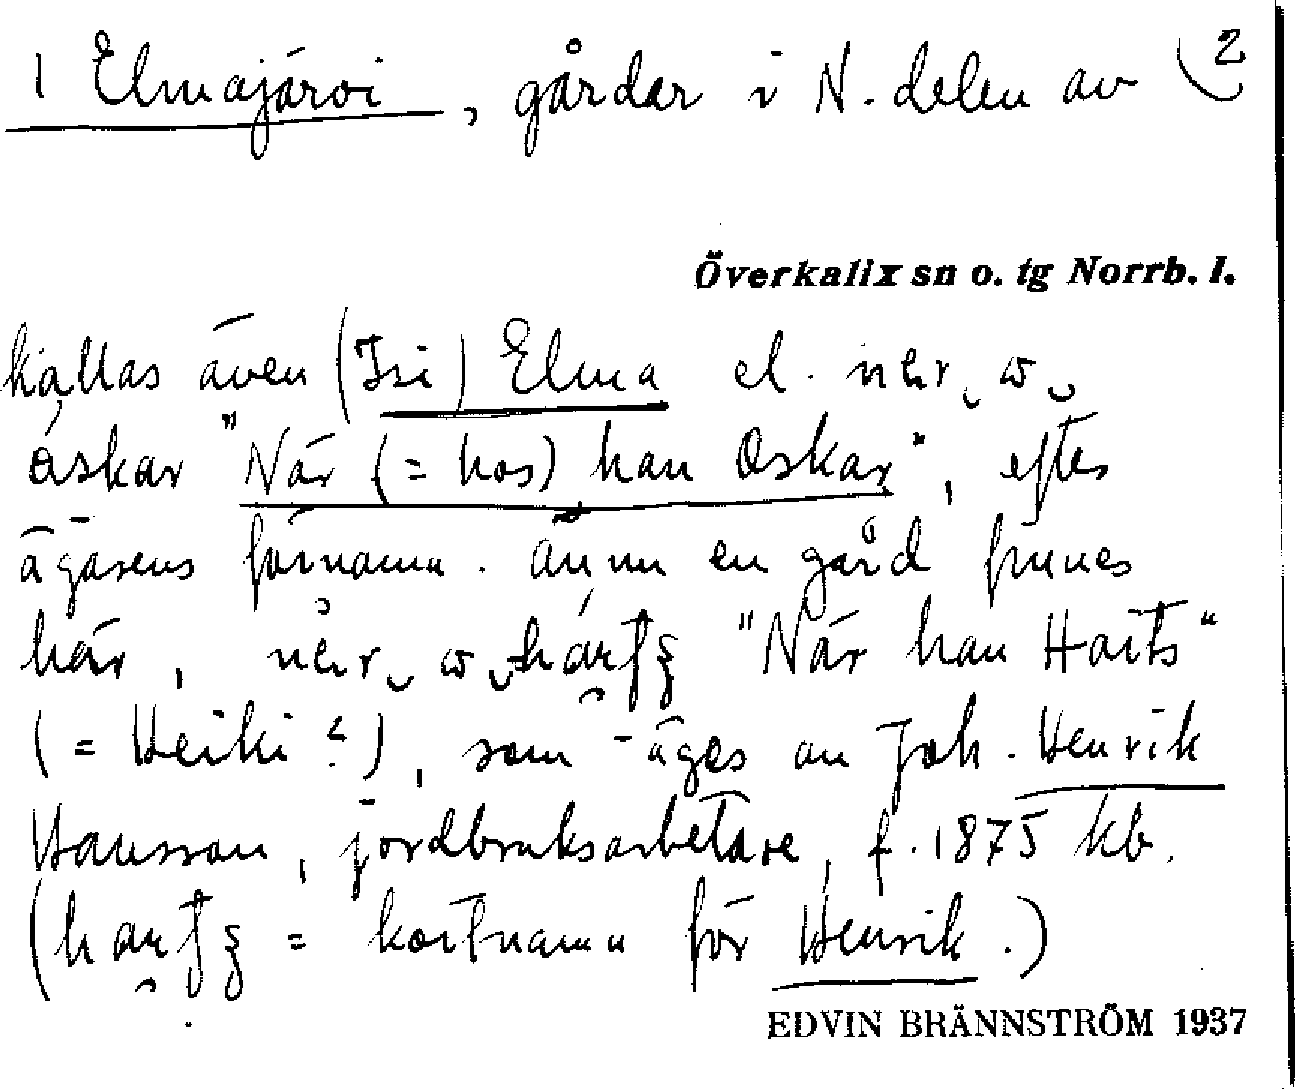 1 Elmajärvi, gårdar i N. delen av 2
Överkalix sn o. tg Norrb. l.
kallas även (Isi) Elma el.
åskar "När (= hos) han Oskar", efter
ägarens förnamn. Ännu en gård finnes
här, "När han Haits"
(= Heiki?), som äges av Joh. Henrik
Hansson, jordbruksarbetare, f. 1875 kb.
( = kortnamn för Henrik.)
EDVIN BRÄNNSTRÖM 1937